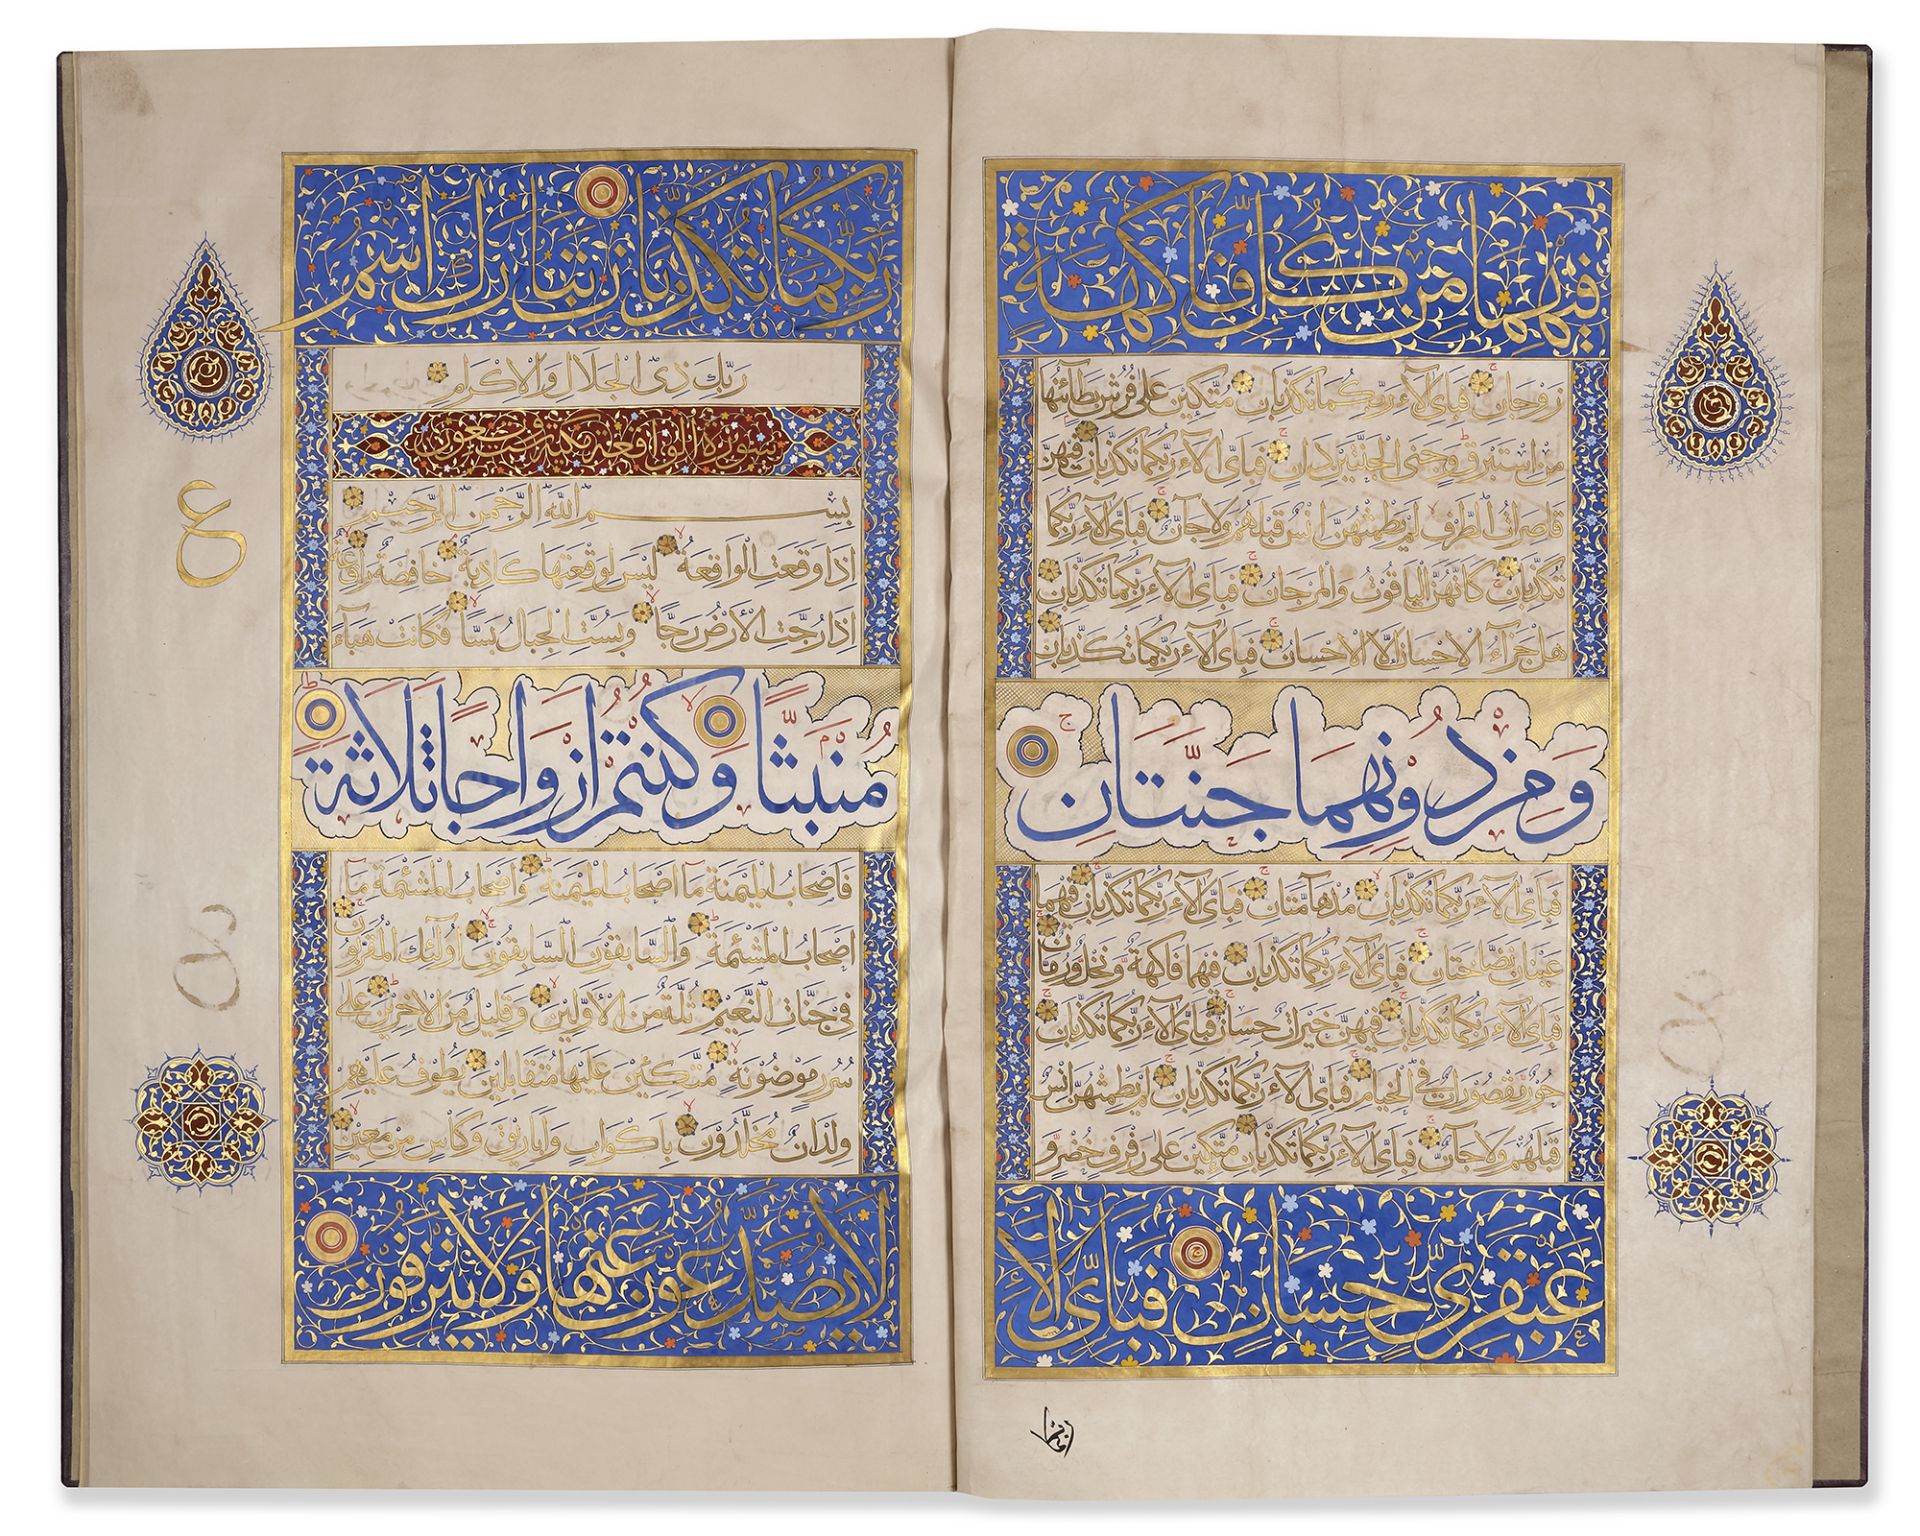 فيهما من كل فاكهة
زوجان فبأي آلاء ربكما تكذبان متكئين على فرش بطائنها
من استبرق وجنى الجنتين دان فبأي آلاء ربكما تكذبان فيهن
قاصرات الطرف لم يطمثهن انس قبلهم ولا جان فبأي آلاء ربكما
تكذبان كأنهن الياقوت والمرجان فبأي آلاء ربكما تكذبان
هل جزآء الاحسان الا الاحسان فبأي آلاء ربكما تكذبان
وَمِنْ دُونِهِمَا جَنَّتَانِ
فبأي آلاء ربكما تكذبان مدهآمتان فبأي آلاء ربكما تكذبان فيهما
عينان نضاختان فبأي آلاء ربكما تكذبان فيهما فاكهة ونخل ورمان
فبأي آلاء ربكما تكذبان فيهن خيرات حسان فبأي آلاء ربكما تكذبان
حور مقصورات في الخيام فبأي آلاء ربكما تكذبان لم يطمثهن انس
قبلهم ولا جان فبأي آلاء ربكما تكذبان متكئين على رفرف خضر و
عبقري حسان فبأي آلاء
ربكما تكذبان تبارك اسم
ربك ذي الجلال والاكرام
سورة الواقعة
بسم الله الرحمن الرحيم
اذا وقعت الواقعة ليس لوقعتها كاذبة خافضة رافعة
اذا رجت الأرض رجا وبست الجبال بسا فكانت هباء
مُنْبَثًّا وَكُنْتُمْ اَزْوَاجًا ثَلَاثَةً
فاصحاب الميمنة ما اصحاب الميمنة واصحاب المشئمة مآ
اصحاب المشئمة والسابقون السابقون اولئك المقربون
في جنات النعيم ثلة من الأولين وقليل من الآخرين على
سرر موضونة متكئين عليها متقابلين يطوف عليهم
ولدان مخلدون باكواب واباريق وكأس من معين
لا يصدعون عنها ولا ينزفون
ع